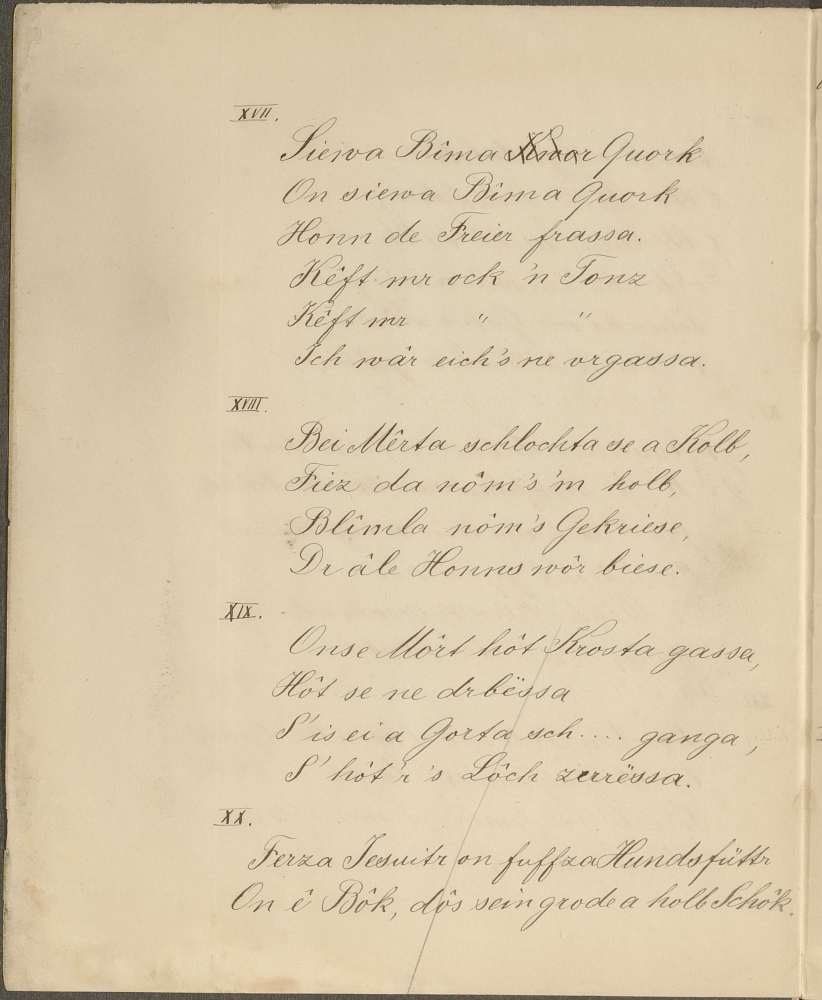 XVII.
Siewa Bîma Quork
On siewa Bîma Quork
Honn de Freier frassa.
Kêft mr ock 'n Tonz
Kêft mr " "
Ich wâr eich's ne vrgassa.
XVIII.
Bei Mêrta schlochta se a Kolb,
Fiez da nôm's 'm holb,
Blîmla nôm's Gekriese,
Dr âle Honns wôr biese.
XIX.
Onse Môrt hôt Krosta gassa,
Hôt se ne drbëssa
S' is ei a Gorta sch.... ganga,
S' hôt'r 's Lôch zurrëssa.
XX.
Ferza Jesuitr on fuffza Hundsfüttr
On ê Bôk, dôs sein grode a holb Schôk.